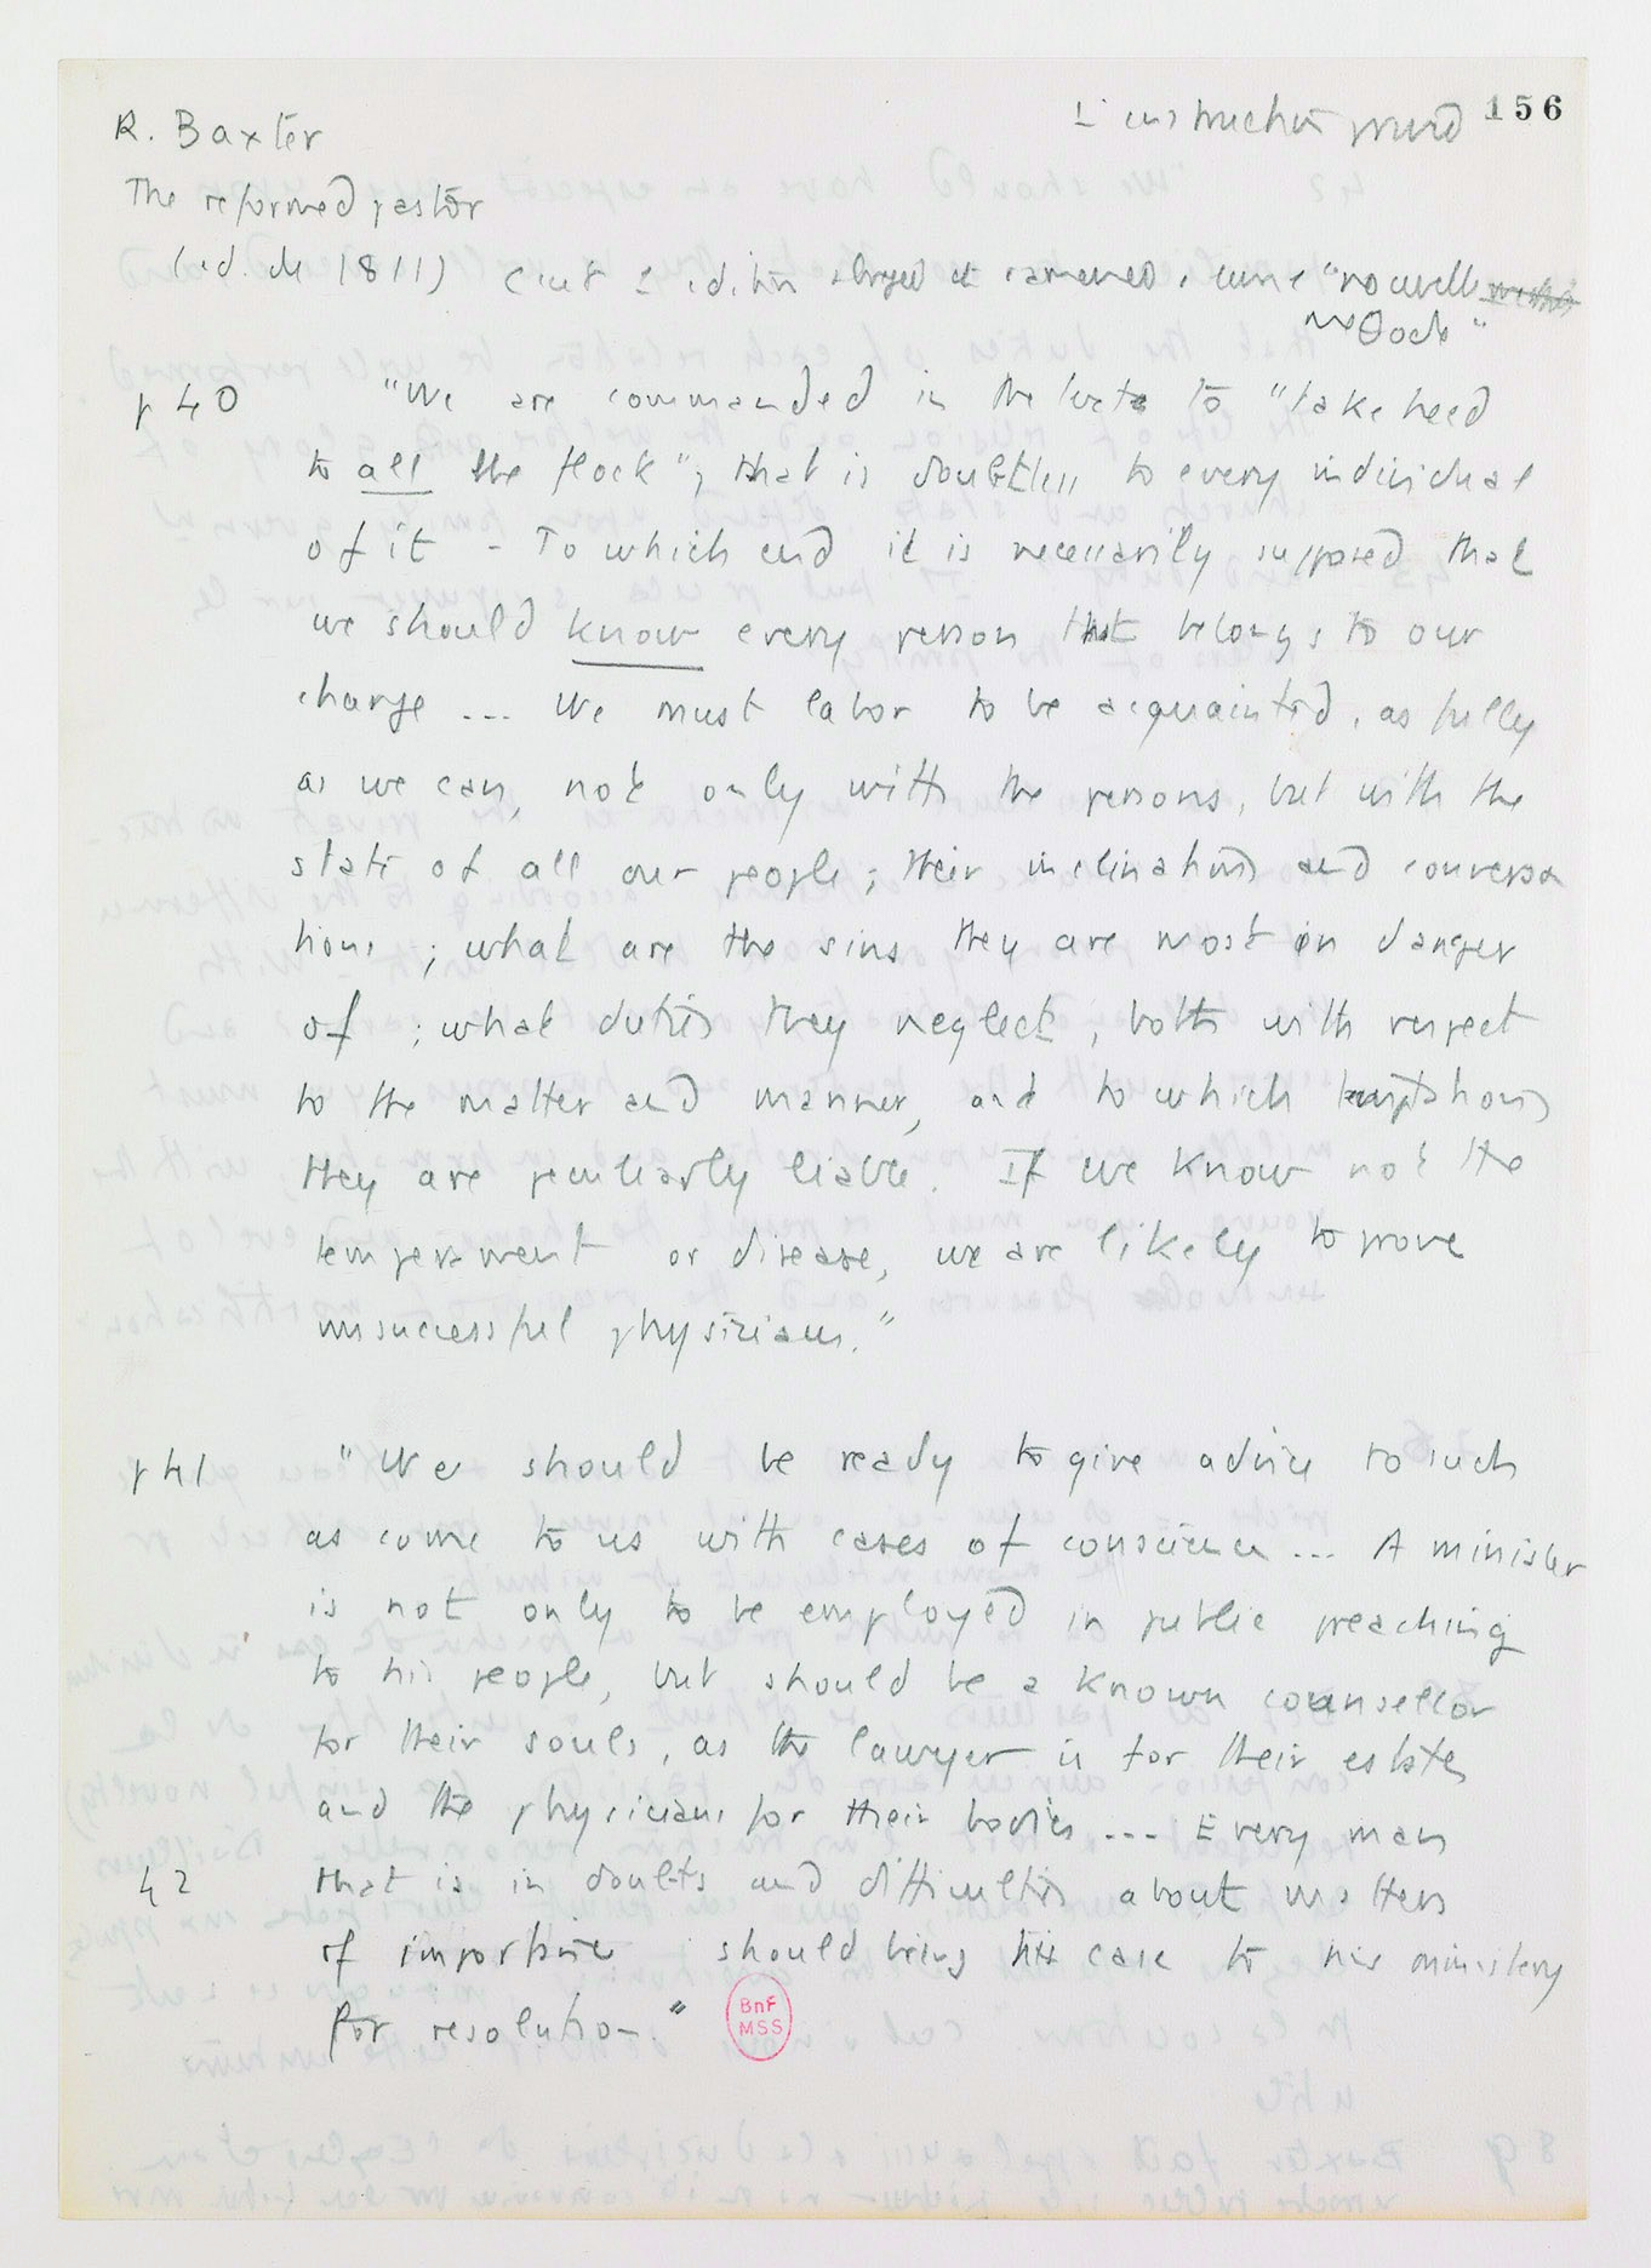 R. Baxter
L'instruction privée 156
The reformed pastor
(éd. de 1811) C'est l'édition abrégée et ramenée à une "nouvelle
méthode"
p 40 "We are commanded in the texte to "take heed
to all the flock"; that is doubtless to every individual
of it - To which end it is necessarily supposed that
we should know every person that belongs to our
charge ... We must labor to be acquainted, as fully
as we can, not only with the persons, but with the
state of all our people; their inclinations and conversa
tions ; what are the sins they are most in danger
of ; what duties they neglect, both with respect
to the matter and manner, and to which temptations
they are peculiarly liable. If we know not the
temperament or disease, we are likely to prove
unsuccessful physicians."
p 41 "We should be ready to give advice to such
as come to us with cases of conscience ... A minister
is not only to be employed in public preaching
to his people, but should be a known counsellor
for their souls, as the lawyer is for their estates
and the physicians for their bodies ... Every man
42 that is in doubts and difficulties about matters
of importance should bring his case to his ministery
for resolution."
BnF
MSS